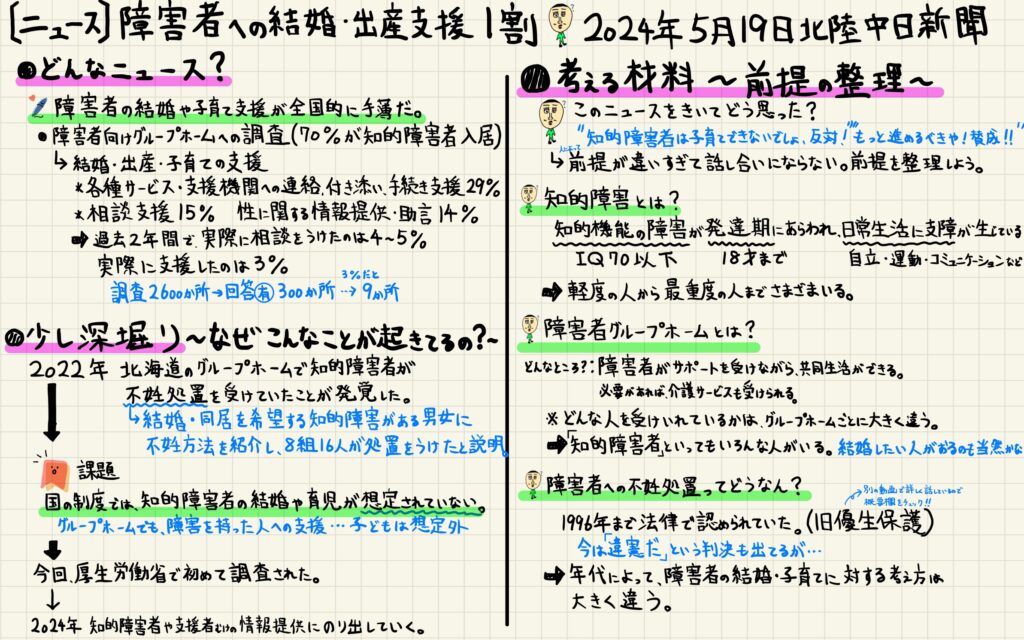 [ニュース]障害者への結婚・出産支援1割 2024年5月19日北陸中日新聞
どんなニュース?
障害者の結婚や子育て支援が全国的に手薄だ。
●障害者向けグループホームへの調査(70%が知的障害者入居)
↳結婚・出産・子育ての支援
*各種サービス・支援機関への連絡、付き添い、手続き支援29%
*相談支援15% 性に関する情報提供・助言14%
➡過去2年間で、実際に相談をうけたのは4~5%
実際に支援したのは3%
3%だと
調査2600か所→回答有300か所⇢9か所
少し深堀り~なぜこんなことが起きてるの?~
2022年 北海道のグループホームで知的障害者が
不妊処置を受けていたことが発覚した。
↳結婚・同居を希望する知的障害がある男女に
不妊方法を紹介し、8組16人が処置をうけたと説明。
課題
国の制度では、知的障害者の結婚や育児が想定されていない。
グループホームでも、障害を持った人への支援…子どもは想定外
今回、厚生労働省で初めて調査された。
2024年 知的障害者や支援者むけの情報提供にのり出していく。
考える材料 ~前提の整理~
このニュースをきいてどう思った?
"知的障害者は子育てできないでしょ、反対!""もっと進めるべきや!賛成!!"
人によって
↳前提が違いすぎて話し合いにならない。前提を整理しよう。
知的障害とは?
知的機能の障害が発達期にあらわれ、日常生活に支障が生じている
IQ70以下 18才まで 自立・運動・コミュニケーションなど
➡軽度の人から最重度の人までさまざまいる。
障害者グループホームとは?
どんなところ?:障害者がサポートを受けながら、共同生活ができる。
必要があれば、介護サービスも受けられる。
※どんな人を受けいれているかは、グループホームごとに大きく違う。
➡「知的障害者」といってもいろんな人がいる。結婚したい人がおるのも当然かな
障害者への不妊処置ってどうなん?
別の動画で詳しく話しているので
概要欄をチェック!!
1996年まで法律で認められていた。(旧優生保護)
今は「違憲だ」という判決も出てるが…
➡年代によって、障害者の結婚・子育てに対する考え方は
大きく違う。